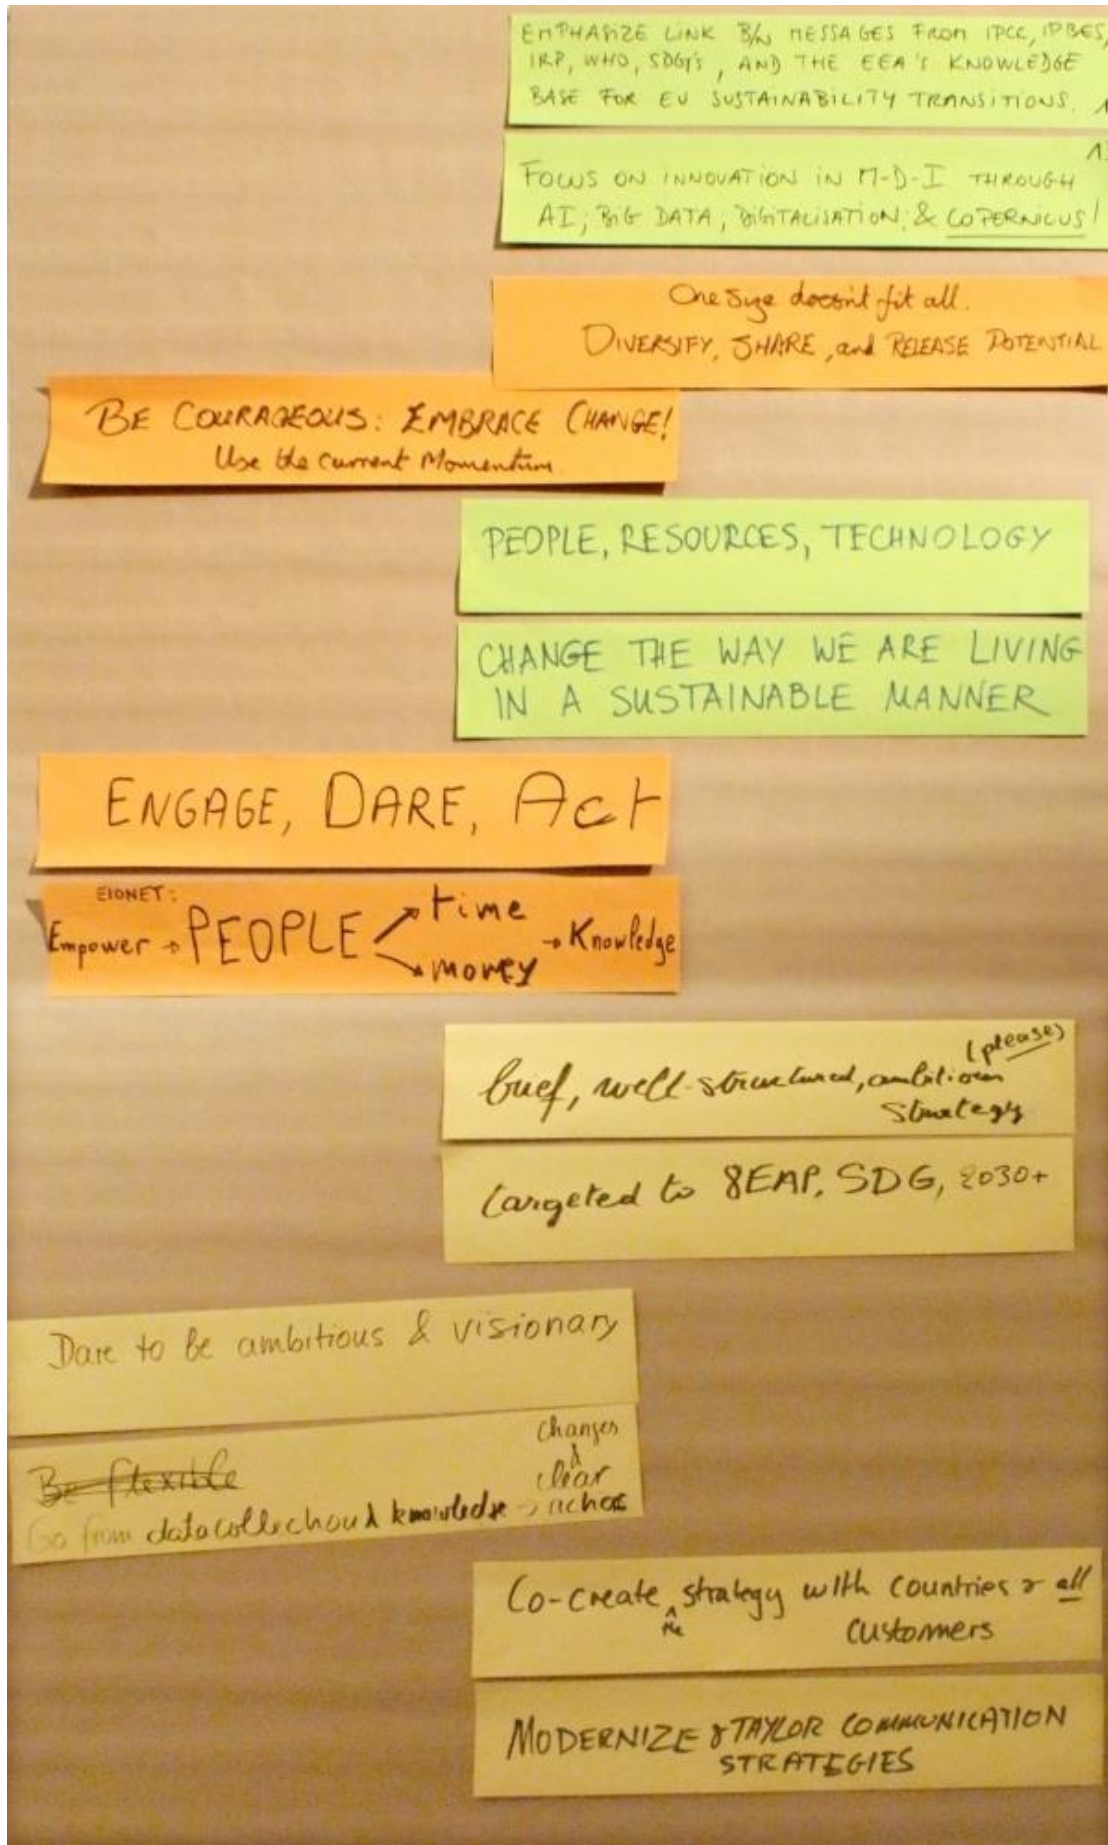 EMPHASIZE LINK B/W MESSAGES FROM IPCC, IPBES,
IRP, WHO, SDG's, AND THE EEA'S KNOWLEDGE
BASE FOR EU SUSTAINABILITY TRANSITIONS.
FOCUS ON INNOVATION IN M-D-I THROUGH
AI, BIG DATA, DIGITALISATION, & COPERNICUS!
One Size doesn't fit all.
DIVERSIFY, SHARE, and RELEASE POTENTIAL
BE COURAGEOUS: EMBRACE CHANGE!
Use the current Momentum.
PEOPLE, RESOURCES, TECHNOLOGY
CHANGE THE WAY WE ARE LIVING
IN A SUSTAINABLE MANNER
ENGAGE, DARE, Act
EIONET:
Empower → PEOPLE → time
→ money
→ Knowledge
(please)
brief, well-structured, ambitious
strategy
targeted to 8EAP, SDG, 2030+
Dare to be ambitious & visionary
changes
Be flexible
clear
Go from data collection & knowledge →
Co-create the strategy with countries & all
customers
MODERNIZE & TAYLOR COMMUNICATION
STRATEGIES